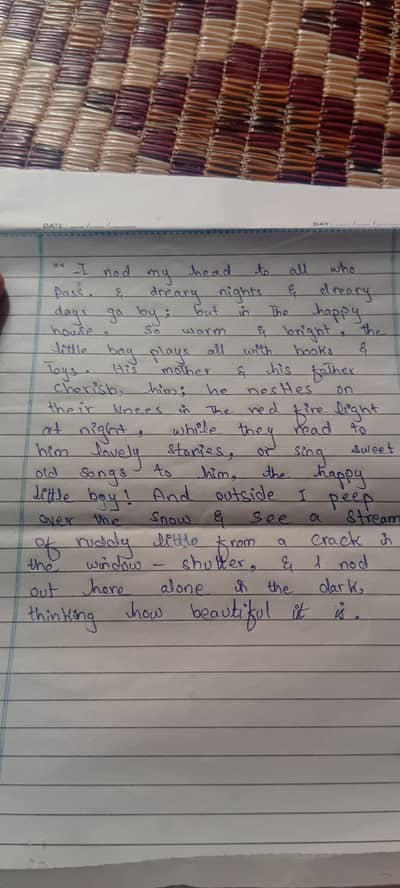 DATE: __/__/____ DAY: __/__/____
"" -I nod my head to all who
pass. & dreary nights & dreary
days go by; but in The happy
house, so warm & bright, the
little boy plays all with books &
Toys. His mother & his father
Cherish, him; he nestles on
their knees in The red fire light
at night, while they read to
him lovely stories, or sing sweet
old songs to him, the happy
little boy! And outside I peep
over the snow & see a stream
of ruddy little from a crack in
the window - shutter, & I nod
out here alone in the dark,
thinking how beautiful it is.